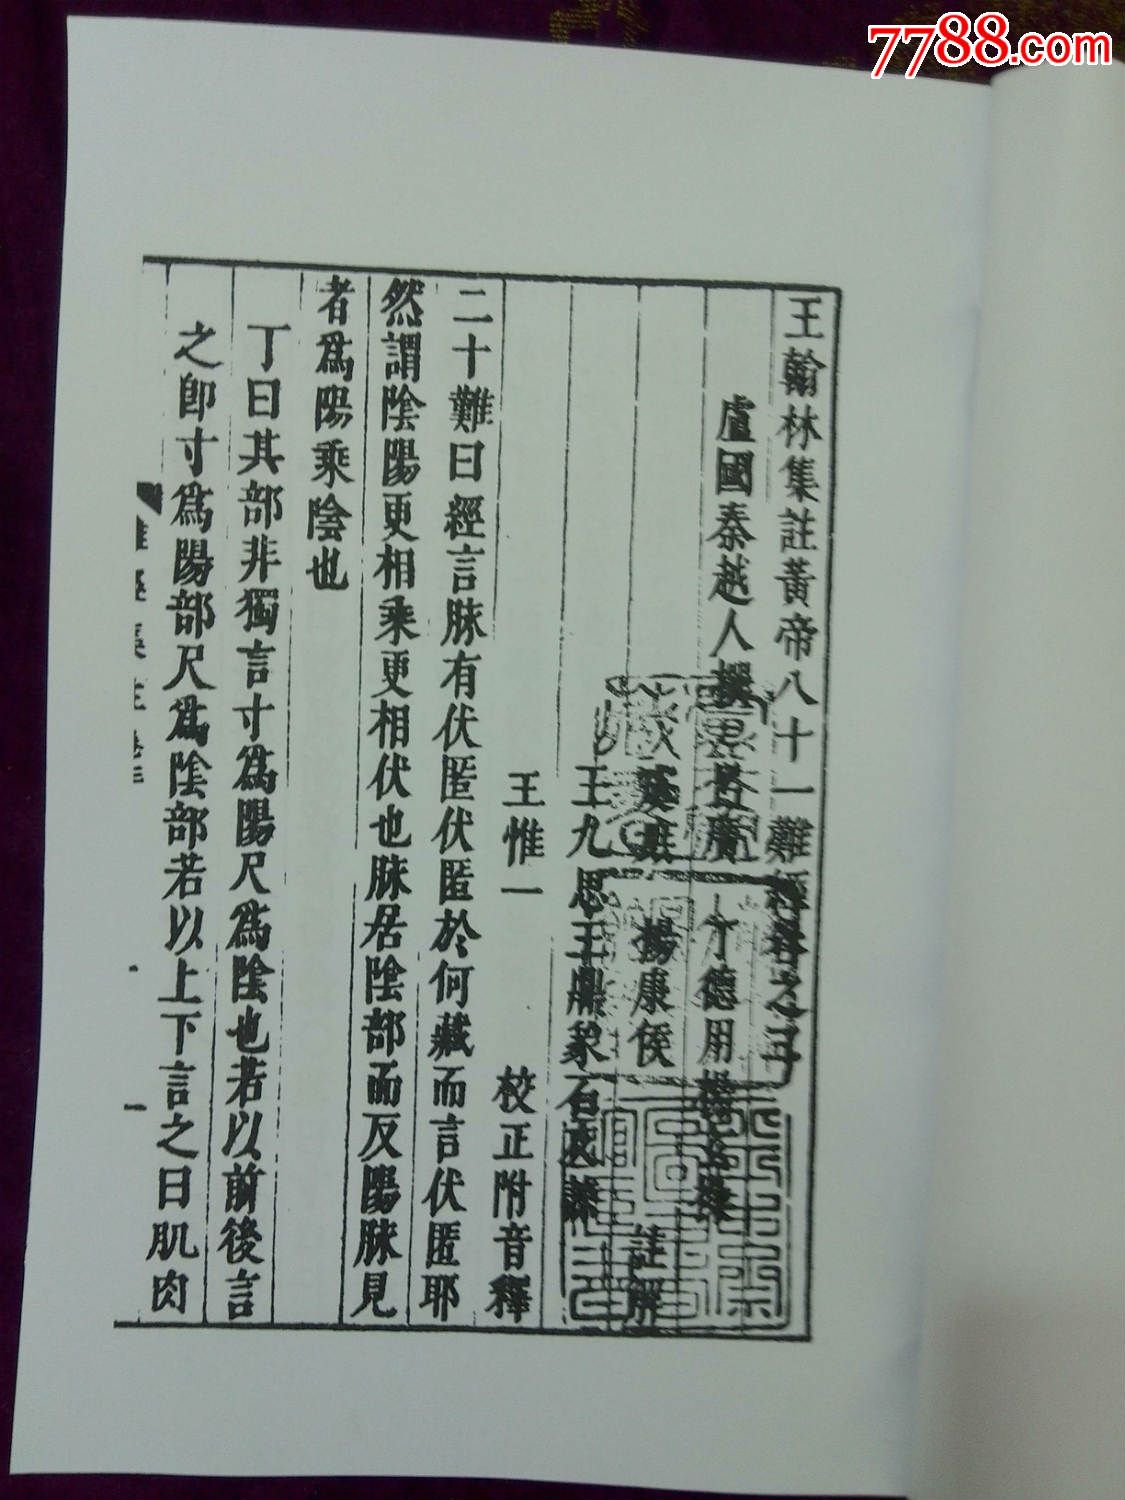 7788.com
王翰林集註黃帝八十一難經卷之三
盧國秦越人撰 呂廣 丁德用
楊康侯 註解
王九思王鼎象石友諒
王惟一 校正附音釋
二十難曰經言脉有伏匿伏匿於何藏而言伏匿耶
然謂陰陽更相乘更相伏也脉居陰部而反陽脉見
者爲陽乘陰也
丁曰其部非獨言寸爲陽尺爲陰也若以前後言
之卽寸爲陽部尺爲陰部若以上下言之曰肌肉
一